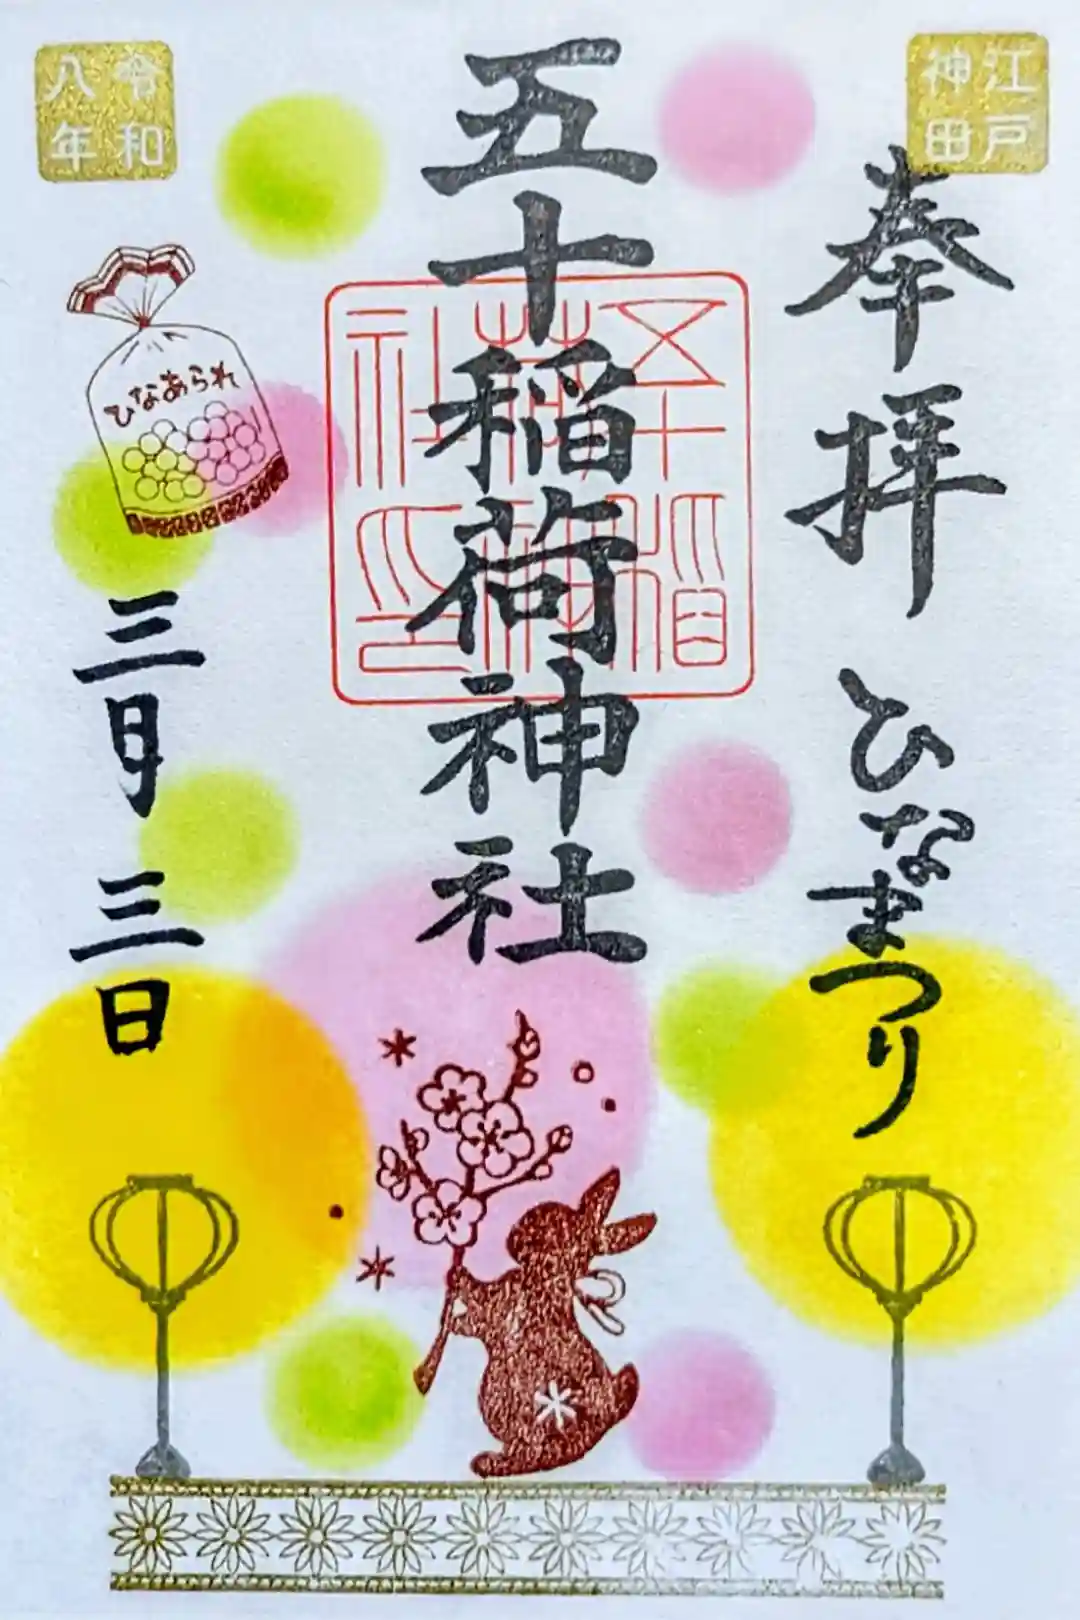 江戸
神田
奉拝 ひなまつり
五十稲荷神社
五十稲
荷神
社之印
令和
八年
ひなあられ
三月三日